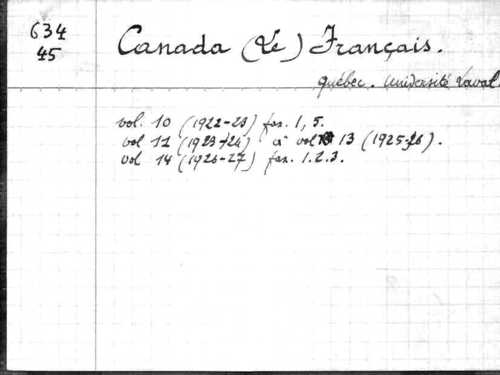 634
45
Canada (Le) Français.
Québec. Université Laval.
vol. 10 (1922-23) fas. 1, 5.
vol 11 (1923-24) à vol 13 (1925-26).
vol 14 (1926-27) fas. 1.2.3.